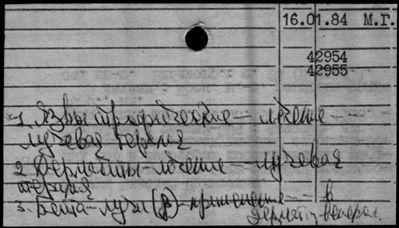 16.01.84 М.Г.
42954
42955
1. Язвы трофические – лечение –
лучевая терапия
2 Дерматиты – лечение – лучевая
терапия
3. Бета-лучи (β) – применение – в
дермат., венерол.